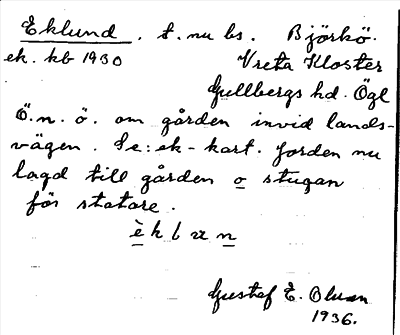 Eklund. t. nu bs. Björkö.
ek. kb 1930 Vreta Kloster
Gullbergs hd. Ögl
Ö.n.ö. om gården invid lands-
vägen. Se: ek-kart. Jorden nu
lagd till gården o stugan
för statare.
èklun
Gustaf E. Olsson
1936.